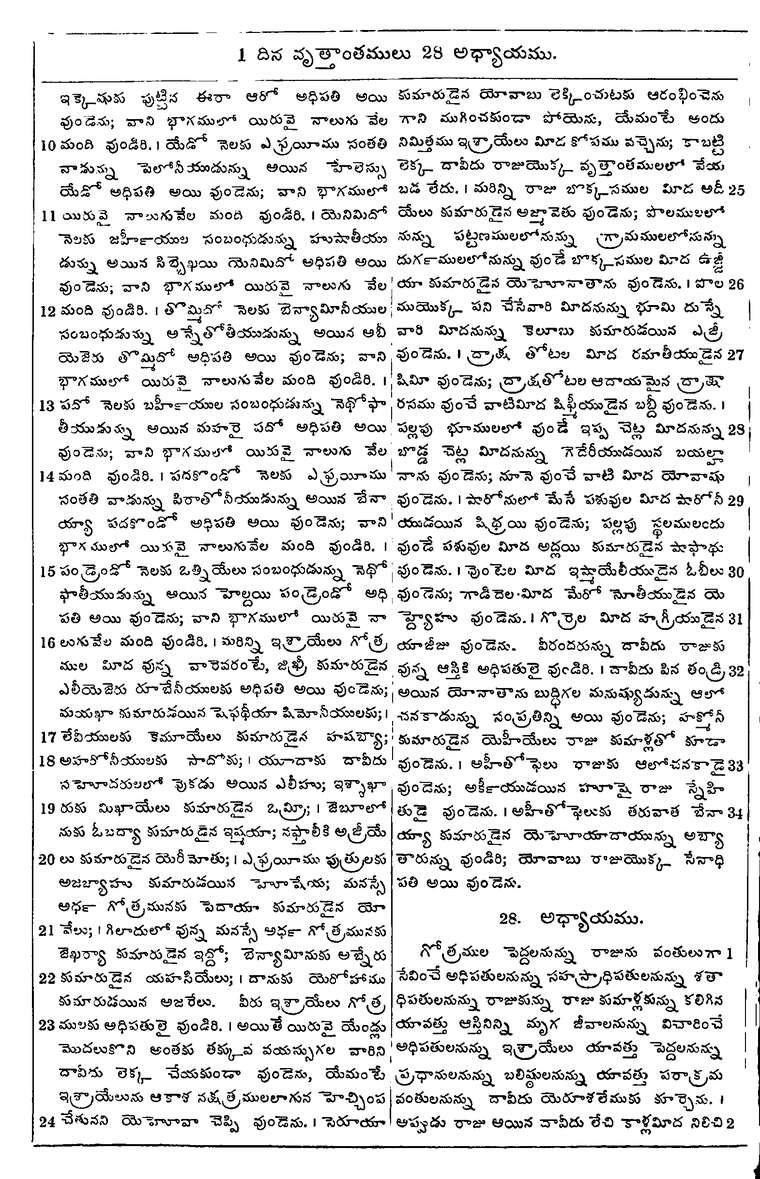 1 దిన వృత్తాంతములు 28 అధ్యాయము.
ఇక్కెషుకు పుట్టిన ఈరా ఆరో అధిపతి అయి
వుండెను; వాని భాగములో యిరువై నాలుగు వేల
10 మంది వుండిరి. । యేడో నెలకు ఎఫ్రయీము సంతతి
వాడున్ను పెలోనీయుడున్ను అయిన హేలెస్సు
యేడో అధిపతి అయి వుండెను; వాని భాగములో
11 యిరువై నాలుగువేల మంది వుండిరి. । యెనిమిదో
నెలకు జహీకాయుల సంబంధుడున్ను హుషాతీయు
డున్ను అయిన సిబ్బెఖయి యెనిమిదో అధిపతి అయి
వుండెను; వాని భాగములో యిరువై నాలుగు వేల
12 మంది వుండిరి. । తొమ్మిదో నెలకు బెన్యామీనీయుల
సంబంధుడున్ను అన్నేతోతీయుడున్ను అయిన ఆబీ
యెజెరు తొమ్మిదో అధిపతి అయి వుండెను; వాని
భాగములో యిరువై నాలుగువేల మంది వుండిరి. ।
13 పదో నెలకు బహీకాయుల సంబంధుడున్ను నెథోఫా
తీయుడున్ను అయిన మహరై పదో అధిపతి అయి
వుండెను; వాని భాగములో యిరువై నాలుగు వేల
14 మంది వుండిరి. । పదకొండో నెలకు ఎఫ్రయీము
సంతతి వాడున్ను పిరాతోనీయుడున్ను అయిన బేనా
య్యా పదకొండో అధిపతి అయి వుండెను; వాని
భాగములో యిరువై నాలుగువేల మంది వుండిరి. ।
15 పండ్రెండో నెలకు ఒత్నియేలు సంబంధుడున్ను నెథో
ఫాతీయుడున్ను అయిన హెల్దయి పండ్రెండో అధి
పతి అయి వుండెను; వాని భాగములో యిరువై నా
16 లుగువేల మంది వుండిరి. । మరిన్ని ఇశ్రాయేలు గోత్ర
ముల మీద వున్న వారెవరంటే, జిఖ్రీ కుమారుడైన
ఎలీయెజెరు రూబేనీయులకు అధిపతి అయి వుండెను;
మయఖా కుమారుడయిన షెఫథీయా షిమోనీయులకు; ।
17 లేవీయులకు కెమూయేలు కుమారుడైన హషబ్యా;
18 అహరోనీయులకు సాదోకు; । యూదాకు దావీదు
సహోదరులలో వొకడు అయిన ఎలీహు; ఇశ్శాఖా
19 రుకు మిఖాయేలు కుమారుడైన ఒమ్రీ; । జెబూలో
నుకు ఓబద్యా కుమారుడైన ఇష్మయా; నఫ్తాలీకి అజ్రీయే
20 లు కుమారుడైన యెరీమోతు; । ఎఫ్రయీము పుత్రులకు
అజజ్యాహు కుమారుడయిన హూషేయ; మనస్సే
అర్ధ గోత్రమునకు పెదాయా కుమారుడైన యో
21 వేలు; । గిలాదులో వున్న మనస్సే అర్ధ గోత్రమునకు
జెఖర్యా కుమారుడైన ఇద్దో; బెన్యామీనుకు అబ్నేరు
22 కుమారుడైన యహసియేలు; । దానుకు యెరోహాము
కుమారుడయిన అజరేలు. వీరు ఇశ్రాయేలు గోత్ర
23 ములకు అధిపతులై వుండిరి. । అయితే యిరువై యేండ్లు
మొదలుకొని అంతకు తక్కువ వయస్సుగల వారిని
దావీదు లెక్క చేయకుండా వుండెను, యేమంటే
ఇశ్రాయేలును ఆకాశ నక్షత్రములలాగున హెచ్చింప
24 చేతునని యెహోవా చెప్పి వుండెను. । సెరూయా
కుమారుడైన యోవాబు లెక్కించుటకు ఆరంభించెను
గాని ముగించకుండా పోయెను, యేమంటే అందు
నిమిత్తము ఇశ్రాయేలు మీద కోపము వచ్చెను; కాబట్టి
లెక్క దావీదు రాజుయొక్క వృత్తాంతములలో వేయ
బడ లేదు. । మరిన్ని రాజు బొక్కసముల మీద అదీ 25
యేలు కుమారుడైన అజ్మావెతు వుండెను; పొలములలో
నున్న పట్టణములలోనున్ను గ్రామములలోనున్ను
దుర్గములలోనున్ను వుండే బొక్కసముల మీద ఉజ్జీ
యా కుమారుడైన యెహూనాతాను వుండెను. । పొల 26
ముయొక్క పని చేసేవారి మీదనున్ను భూమి దున్నే
వారి మీదనున్ను కెలూబు కుమారుడయిన ఎజ్రీ
వుండెను. । ద్రాక్ష తోటల మీద రమాతీయుడైన 27
షిమీ వుండెను; ద్రాక్షతోటల ఆదాయమైన ద్రాక్షా
రసము వుంచే వాటిమీద షిఫ్మీయుడైన బబ్దీ వుండెను. ।
పల్లపు భూములలో వుండే ఇప్ప చెట్ల మీదనున్ను 28
బొడ్డ చెట్ల మీదనున్ను గెదేరీయుడయిన బయల్హా
నాను వుండెను; నూనె వుంచే వాటి మీద యోవాషు
వుండెను. । షారోనులో మేసే పశువుల మీద షారోనీ 29
యుడయిన షిథ్రయి వుండెను; పల్లపు స్థలములందు
వుండే పశువుల మీద అద్లయి కుమారుడైన షాఫాథు
వుండెను. । వొంటెల మీద ఇష్మాయేలీయుడైన ఓబీలు 30
వుండెను; గాడిదెల మీద మేరోనోతీయుడైన యె
హ్దెయాహు వుండెను. । గొర్రెల మీద హగ్రీయుడైన 31
యాజీజు వుండెను. వీరందరున్ను దావీదు రాజుకు
వున్న ఆస్తికి అధిపతులై వుండిరి. । దావీదు పిన తండ్రి 32
అయిన యోనాతాను బుద్ధిగల మనుష్యుడున్ను ఆలో
చనకాడున్ను సంప్రతిన్ని అయి వుండెను; హక్మోనీ
కుమారుడైన యెహీయేలు రాజు కుమాళ్లతో కూడా
వుండెను. । అహీతోఫెలు రాజుకు ఆలోచనకాడై 33
వుండెను; అర్కీయుడయిన హూషై రాజు స్నేహి
తుడై వుండెను. । అహీతోఫెలుకు తరువాత బేనా 34
య్యా కుమారుడైన యెహోయాదాయున్ను అబ్యా
తారున్ను వుండిరి; యోవాబు రాజుయొక్క సేనాధి
పతి అయి వుండెను.
28. అధ్యాయము.
గోత్రముల పెద్దలనున్ను రాజును వంతులుగా 1
సేవించే అధిపతులనున్ను సహస్రాధిపతులనున్ను శతా
ధిపతులనున్ను రాజుకున్ను రాజు కుమాళ్లకున్ను కలిగిన
యావత్తు ఆస్తినిన్ని మృగ జీవాలనున్ను విచారించే
అధిపతులనున్ను ఇశ్రాయేలు యావత్తు పెద్దలనున్ను
ప్రధానులనున్ను బలిష్ఠులనున్ను యావత్తు పరాక్రమ
వంతులనున్ను దావీదు యెరూశలేముకు కూర్చెను. ।
అప్పుడు రాజు అయిన దావీదు లేచి కాళ్లమీద నిలిచి 2